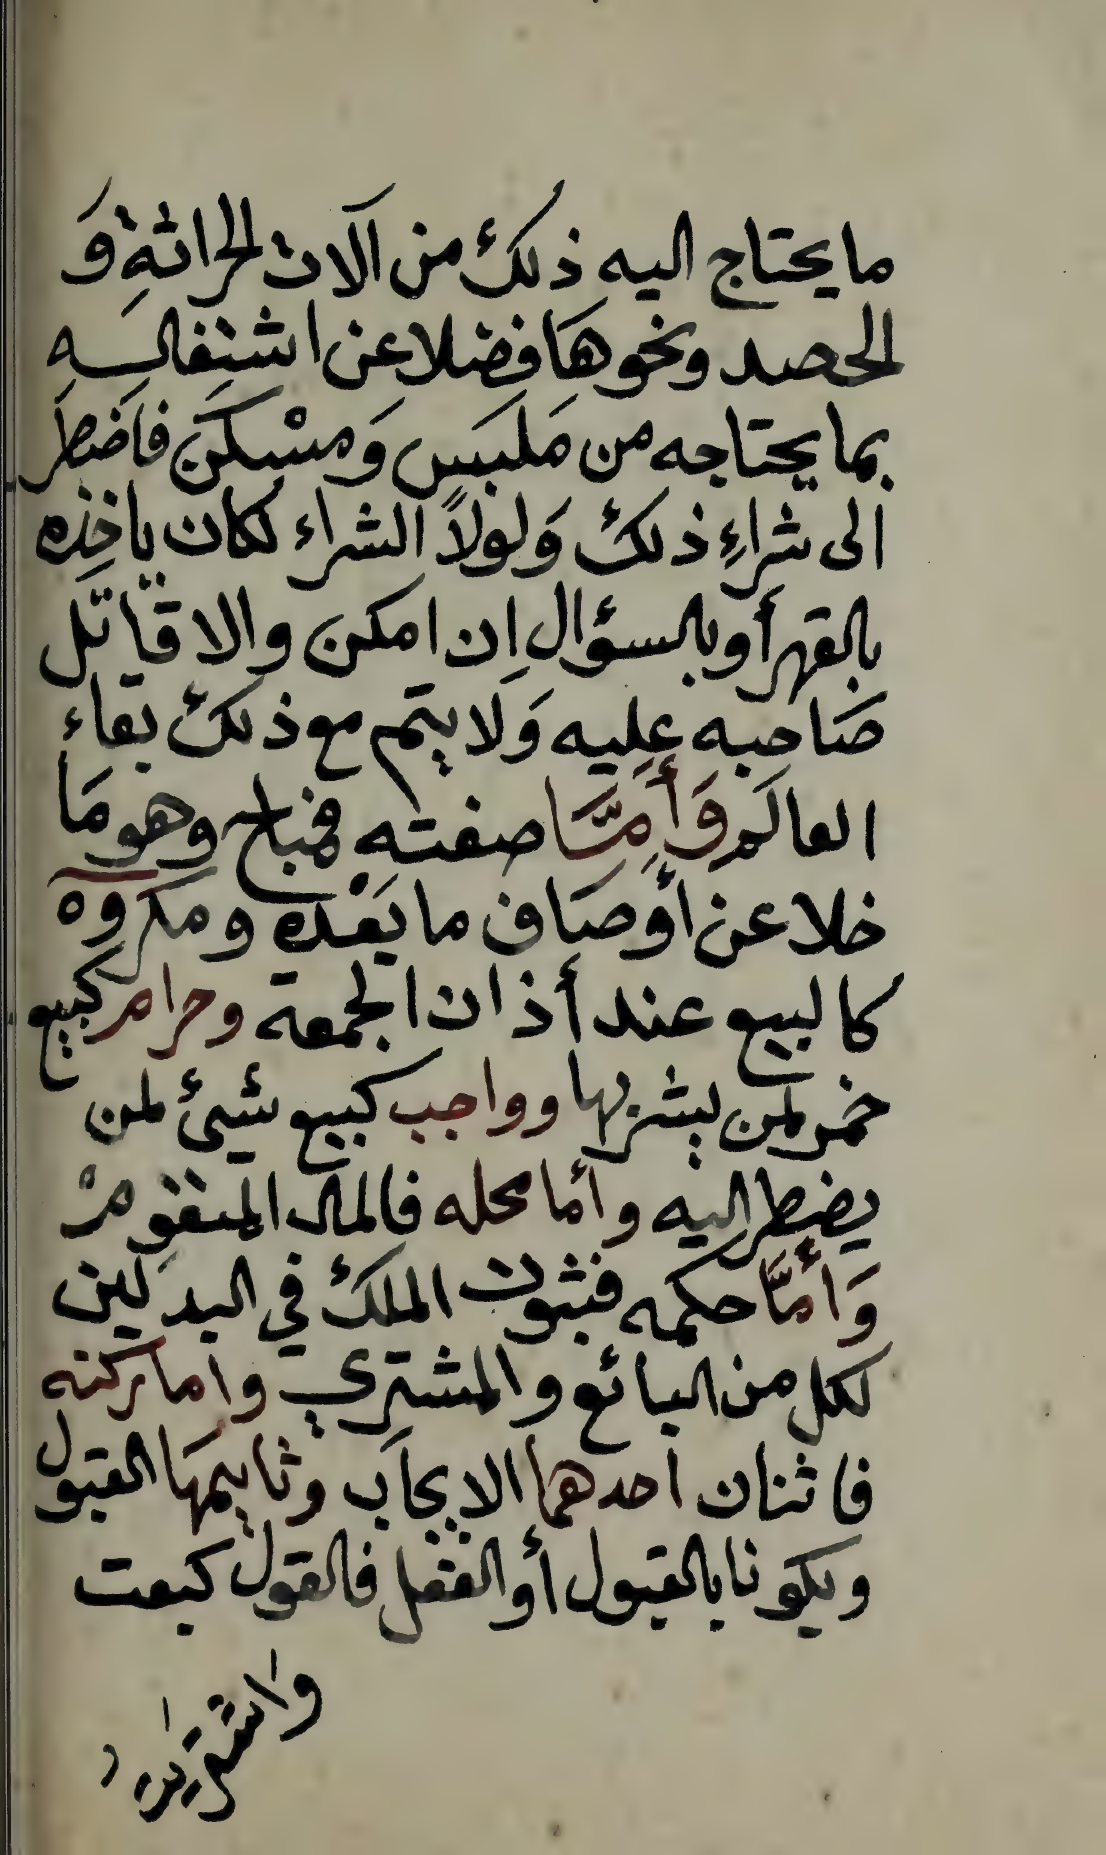 ما يحتاج اليه ذلك من آلات الحراثةِ وَ
الحصد ونحوهَا فضلا عن اشتغاله
بما يحتاجه من مَلبَس وَمسْكَن فاضطر
الى شراءِ ذلك وَلولاَ الشراء لكان ياخذه
بالقهر أوبالسؤال اِن امكن والا قاتل
صَاحبه عليه وَلَا يتم مع ذلك بقاء
العالَم وَأمَّا صفته فمباح وهو مَا
خلا عن أوصَاف ما بَعْده ومكروه
كالبيع عند أذان الجمعة وحرام كبيع
خمر لمن يشربها وواجب كبيع شئ لمن
يضطر اليه وأما محله فالمال المتقوم
وَأمَّا حكمه فثبوت الملك في البدَلين
لكل من البائع والمشتري وأما ركنه
فاثنان احدهما الايجاَب وثانيهمَا القبول
ويكونا بالقبول أوالفعل فالقول كبعت
واشتريت